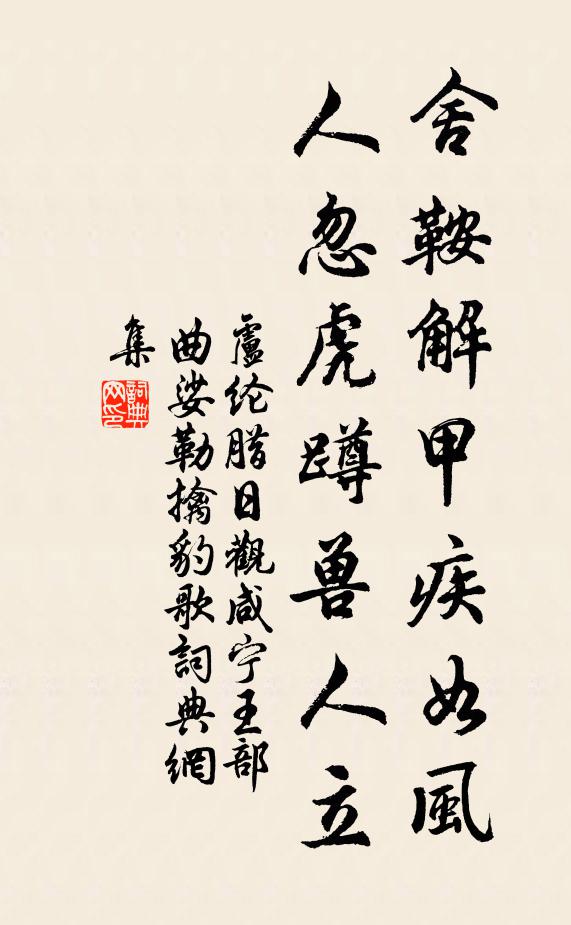 舍鞍解甲疾如風
人忽虎蹲兽人立
盧纶腊日觀咸宁王部
曲娑勒擒豹歌詞典網
集
詞典
网印